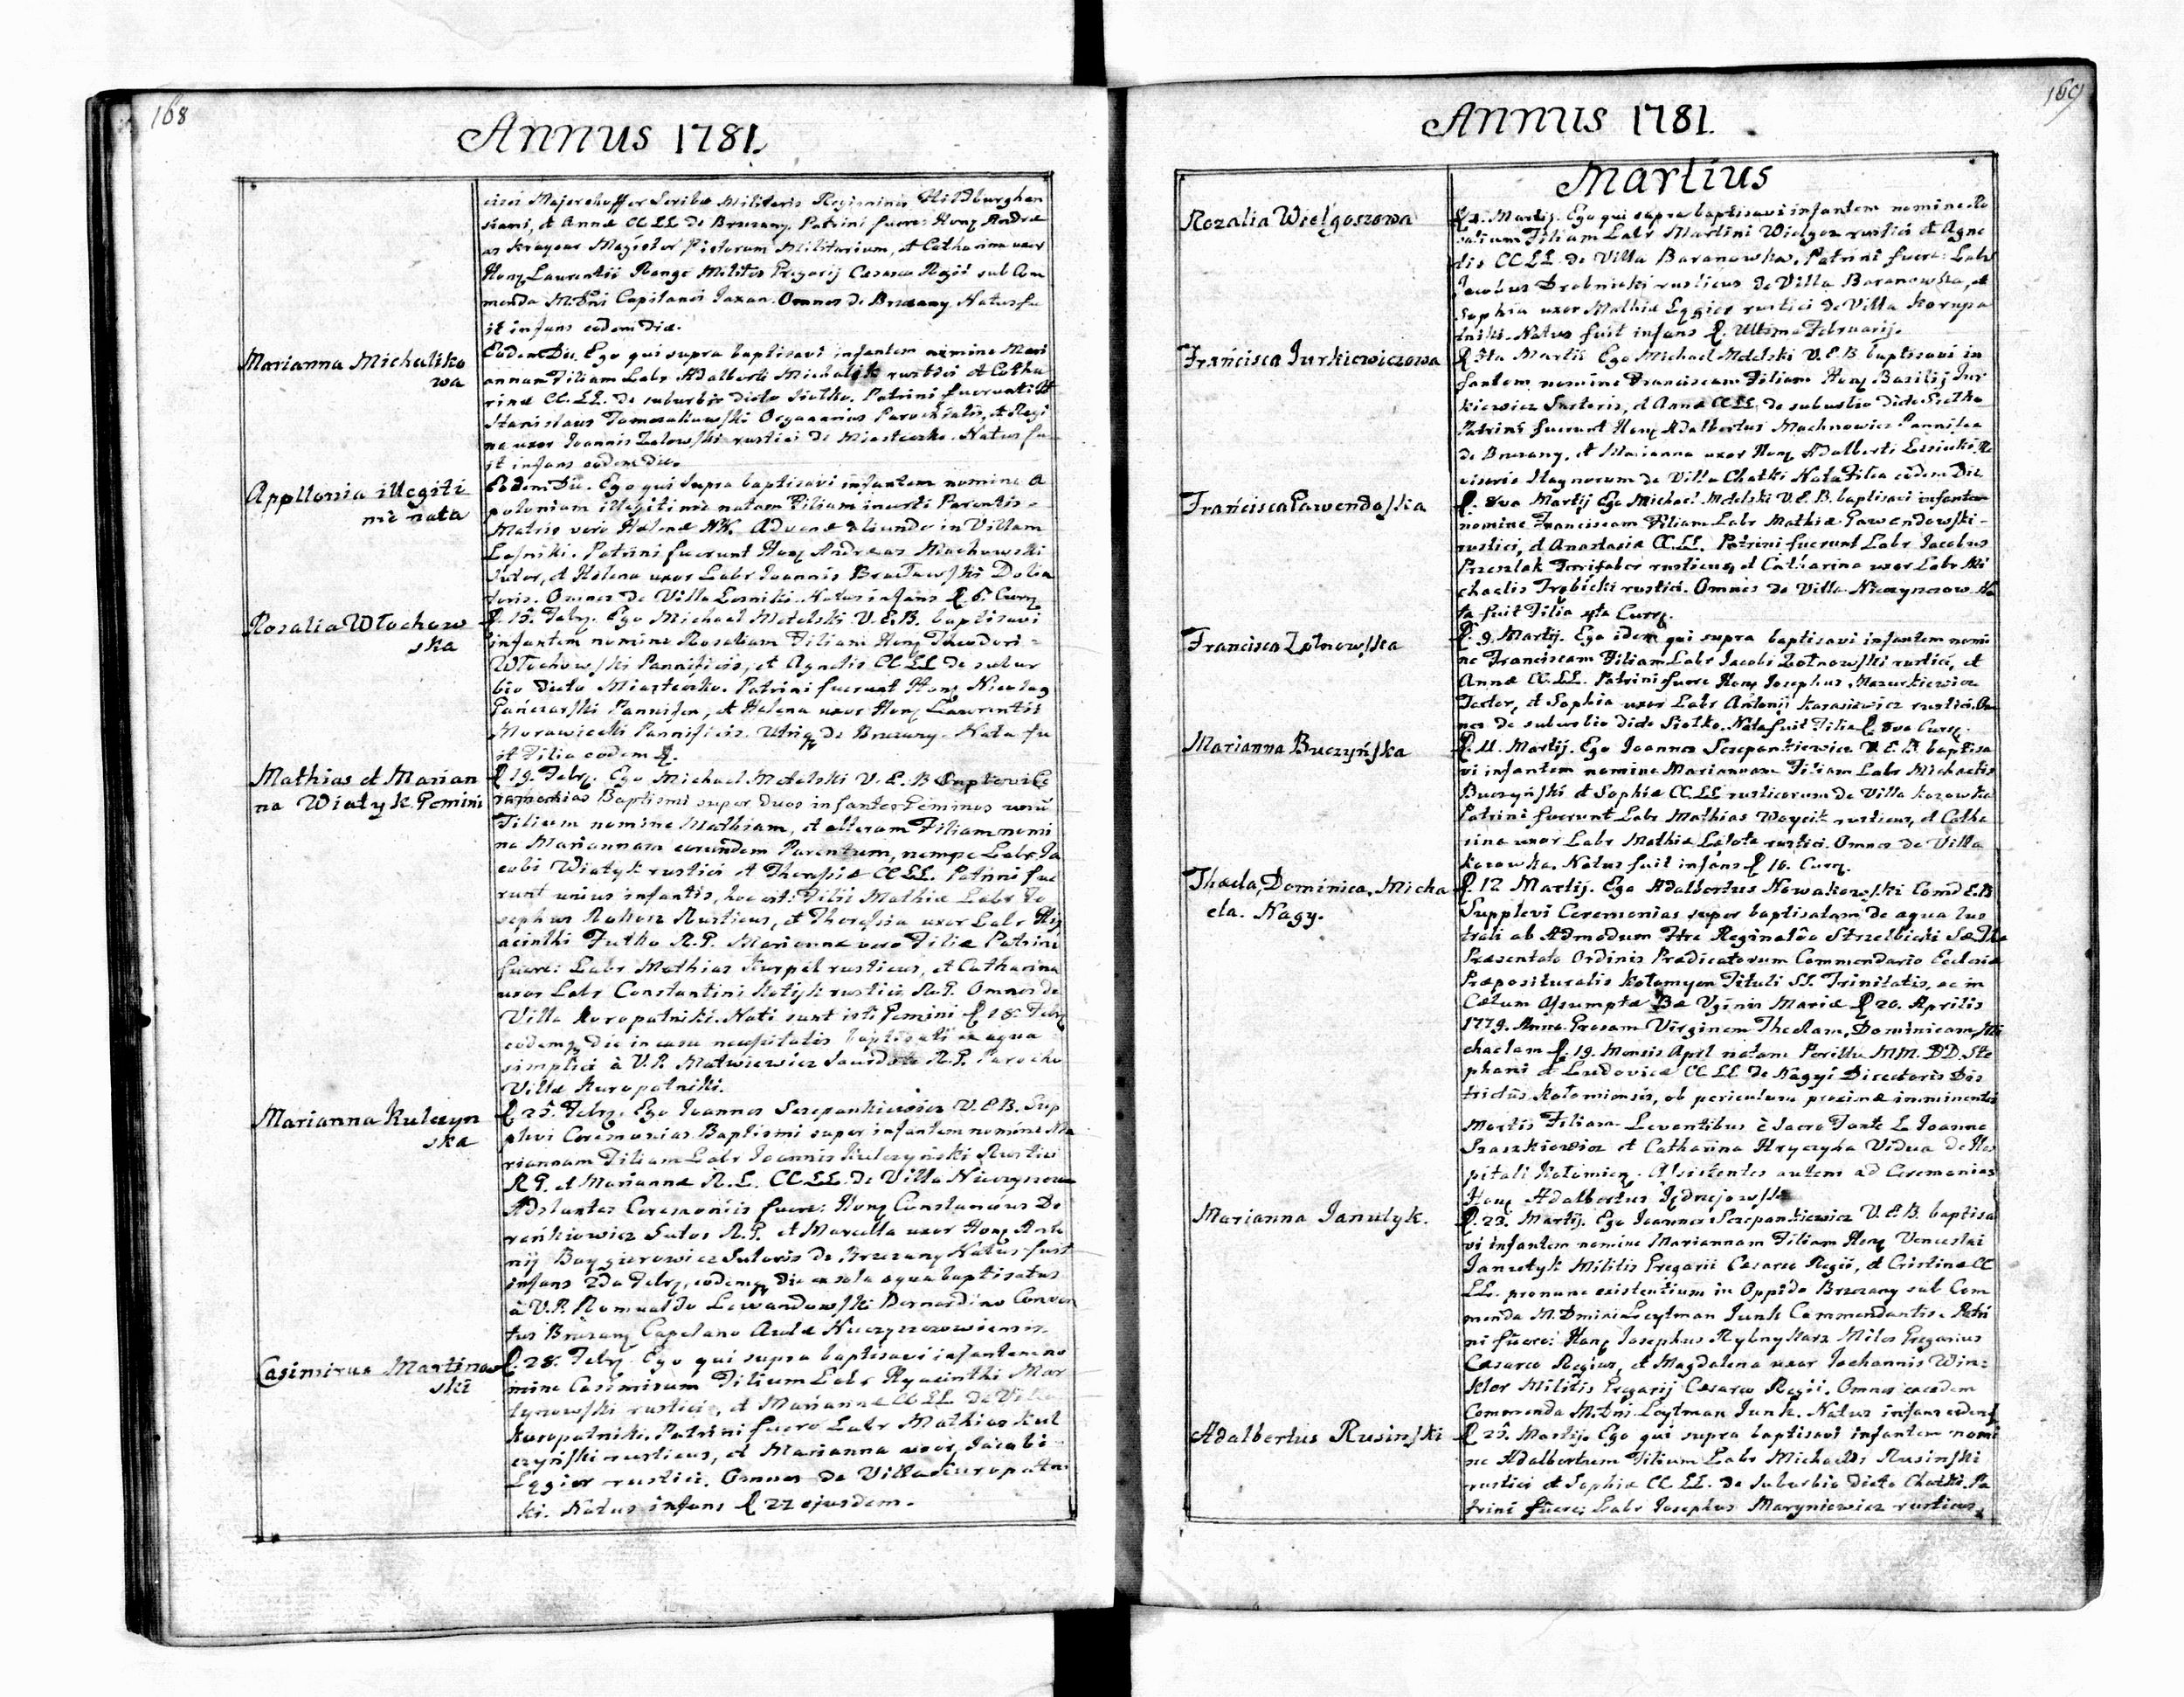 168
Annus 1781.
cisci Majerchoffer Scribæ Militaris Regiminis Hildburghau
siani, et Annæ CC LL de Brzezany. Patrini fuere: Honꝫ Andre
as Krayear Magister Pistorum Militarium, et Catharina uxor
Honꝫ Laurentii Range Militis Gregarij Cæsareo Regii sub Com
menda Capitanei Omnes de Brzezany. Natus fu
it infans eodem die.
Marianna Michaliko
wa
Eodem Die. Ego qui supra baptisavi infantem nomine Mari
annam Filiam Labr Adalberti Michalik rustici et Catha
rinæ CC. LL. de suburbio dicto Siołko. Patrini fuerunt
Stanislaus Organarius Parochialis, et Regi
na uxor Joannis rustici de Miasteczko. Natus fu
it infans eodem die.
Appllonia illegiti
me nata
Eodem Die. Ego qui supra baptisavi infantem nomine A
poloniam illegitime natam Filiam incerti Parentis
Matris vero Helenæ NN. Advenæ aliunde in Villam
Leśniki. Patrini fuerunt Honꝫ Andreas Machowski
Sutor, et Helena uxor Labr Joannis Bracławski Dolia
toris. Omnes de Villa Lesniki. Natus infans 6. Currꝫ
Rosalia Włochow
ska
15. Febrꝫ. Ego Michael Metelski V. E. B. baptisavi
infantem nomine Rosaliam Filiam Honꝫ Theodori
Włochowski Pannificis, et Agnetis CC LL de subur
bio dicto Miasteczko. Patrini fuerunt Honꝫ Nicolaꝯ
Gańczarski Pannifex, et Helena uxor Honꝫ Laurentii
Morawiecki Pannificis. Utriqꝫ de Brzezany. Nata fu
it Filia eodem
Mathias et Marian
na Wiatyk Gemini
19. Febrꝫ. Ego Michael Metelski V. E. B Supplevi Ce
remonias Baptismi super duos infantes Geminos unũ
Filium nomine Mathiam, et alteram Filiam nomi
ne Mariannam eorundem Parentum, nempe Labr Ja
cobi Wiatyk rustici et Theresiæ CC LL. Patrini fue
runt unius infantis, hoc est: Filii Mathiæ Labr Jo
sephus Rusticus, et Theressia uxor Labr Hy
acinthi Futha R. G. Mariannæ vero Filiæ Patrini
fuere: Labr Mathias Kurpel rusticus, et Catharina
uxor Labr Constantini rustici R. G. Omnes de
Villa Kuropatniki. Nati sunt isti Gemini 18. Febrꝫ
eodemqꝫ die in casu necessitatis baptisati ex aqua
simplici à V. P. Matwiewicz R. G. Parocho
Villæ Kuropatniki.
Marianna Kulczyn
ska
25. Febrꝫ. Ego Joannes Szczepankiewicz V. E. B. Sup
plevi Ceremonias Baptismi super infantem nomine Ma
riannam Filiam Labr Joannis Kulczyński Rustici
R G. et Mariannæ R. L. CC LL. de Villa Nuczyszow
Adstantes Ceremoniis fuere: Honꝫ Constantinus Do
reńkiowicz Sutor R. G. et Marcella uxor Honꝫ Anto
nij Boygierowicz Sutoris de Brzezany Natus fuit
infans 2da Febrꝫ, eodemqꝫ die ex sola aqua baptisatus
à V. P. Romualdo Lewandowski Bernardino Conven
tus Brzezanꝫ Capelano Aulæ Nuczyszowiensis.
Casimirus Martinow
ski
28. Febrꝫ. Ego qui supra baptisavi infantem no
mine Casimirum Filium Labr Hyacinthi Mar
tynowski rustici, et Mariannæ CC LL. de Villa
Kuropatniki. Patrini fuere Labr Mathias Kul
czyński rusticus, et Marianna uxor, Jacobi
Łęgier rustici. Omnes de Villa Kuropatni
ki. Natus infans 22 ejusdem.
169
Annus 1781.
Martius
Rozalia Wielgoszowa
2. Martij. Ego qui supra baptisavi infantem nomine Ro
saliam Filiam Labr Martini Wielgosz rustici et Agne
tis CC LL. de Villa Baranowka. Patrini fuere: Labr
Jacobus Drobnicki rusticus de Villa Baranowka, et
Sophia uxor Mathiæ Łęgier rustici de Villa Koropa
tniki. Natus fuit infans Ultima Februarij.
Francisca Jurkiewiczowa
Martii Ego Michael Metelski V. E. B baptisavi in
fantem nomine Franciscam Filiam Honꝫ Basilij Jur
kiewicz Sartoris, et Annæ CC LL. de suburbio dicto Siołko
Patrini fuerunt Honꝫ Adalbertus Machnowicz Pannifex
de Brzezany, et Marianna uxor Honꝫ Adalberti Lesiecki Re
visoris Stagnorum de Villa Chatki Nata Filia eodem Die
Francisca Gawendoska
8va Martij Ego Michael Metelski V. E. B. baptisavi infantem
nomine Franciscam Filiam Labr Mathiæ Gawendowski
rustici, et Anastasiæ CC. LL. Patrini fuerunt Labr Jacobus
Przeszlak Ferrifaber rusticus, et Catharina uxor Labr Mi
chaelis Trębicki rustici. Omnes de Villa Nuczyszow Na
ta fuit Filia 4ta Currꝫ.
Francisca Zołnowska
9. Martij. Ego idem qui supra baptisavi infantem nomi
ne Franciscam Filiam Labr Jacobi Zołnowski rustici, et
Annæ CC. LL. Patrini fuere Honꝫ Josephus Mazurkiewicz
Textor, et Sophia uxor Labr Antonij Karasiewicz rustici. Om
nes de suburbio dicto Siołko. Nata fuit Filia 8va Currꝫ.
Marianna Buczyńska
11. Martij. Ego Joannes Szczepankiewicz V. E. B baptisa
vi infantem nomine Mariannam Filiam Labr Michaelis
Buczyński et Sophiæ CC LL rusticorum de Villa Kozowka
Patrini fuerunt Labr Mathias Woycik rusticus, et Catha
rina uxor Labr Mathiæ rustici. Omnes de Villa
Kozowka. Natus fuit infans 10. Currꝫ.
Thæcla, Dominica, Micha
ela. Nagy.
12 Martij. Ego Adalbertus Nowakowski Comd E. B
Supplevi Ceremonias super baptisatam de aqua lus
trali ab Admodum Ftre Reginaldo Strzelbicki
Præsentato Ordinis Prædicatorum Commendario Ecclesiæ
Præposituralis Kołomyen Tituli SS. Trinitatis, ac in
Cælum Assumptæ Bæ Vginis Mariæ 20. Aprilis
1779. Anno Gnosam Virginem Theclam, Dominicam, Mi
chaelam 19. Mensis April natam Perillu MM. DD. Ste
phani et Ludovicæ CC LL de Nágyi Directoris Dis
trictûs Kołomiensis, ob periculum proximæ imminentis
Mortis Filiam Levantibus è Sacro Fonte L Joanne
Szaszkiewicz et Catharina Hryczyha Vidua de Hos
pitali Kołomien. Assistentes autem ad Ceremonias
Honꝫ Adalbertus Jędrzejowski
Marianna Janutyk.
25. Martij. Ego Joannes Szczepankiewicz V. E. B. baptisa
vi infantem nomine Mariannam Filiam Honꝫ Venceslai
Janutyk Militis Gregarii Cæsareo Regii, et Cristinæ CC
LL. pronunc existentium in Oppido Brzezany sub Com
menda M. Dmini Leytman Junk Commendantis. Patri
ni fuere: Honꝫ Josephus Rybnykarz Miles Gregarius
Cæsareo Regius, et Magdalena uxor Joehannis Win
kler Militis Gregarij Cæsareo Regii. Omnes ex eadem
Commenda M. Dni Leytman Junk. Natus infans eodem
Adalbertus Rusinski
25. Martij. Ego qui supra baptisavi infantem nomi
ne Adalbertum Filium Labr Michaelis Rusinski
rustici et Sophiæ CC LL. de Suburbio dicto Chatki. Pa
trini fuere: Labr Josephus Maryniewicz rusticus,